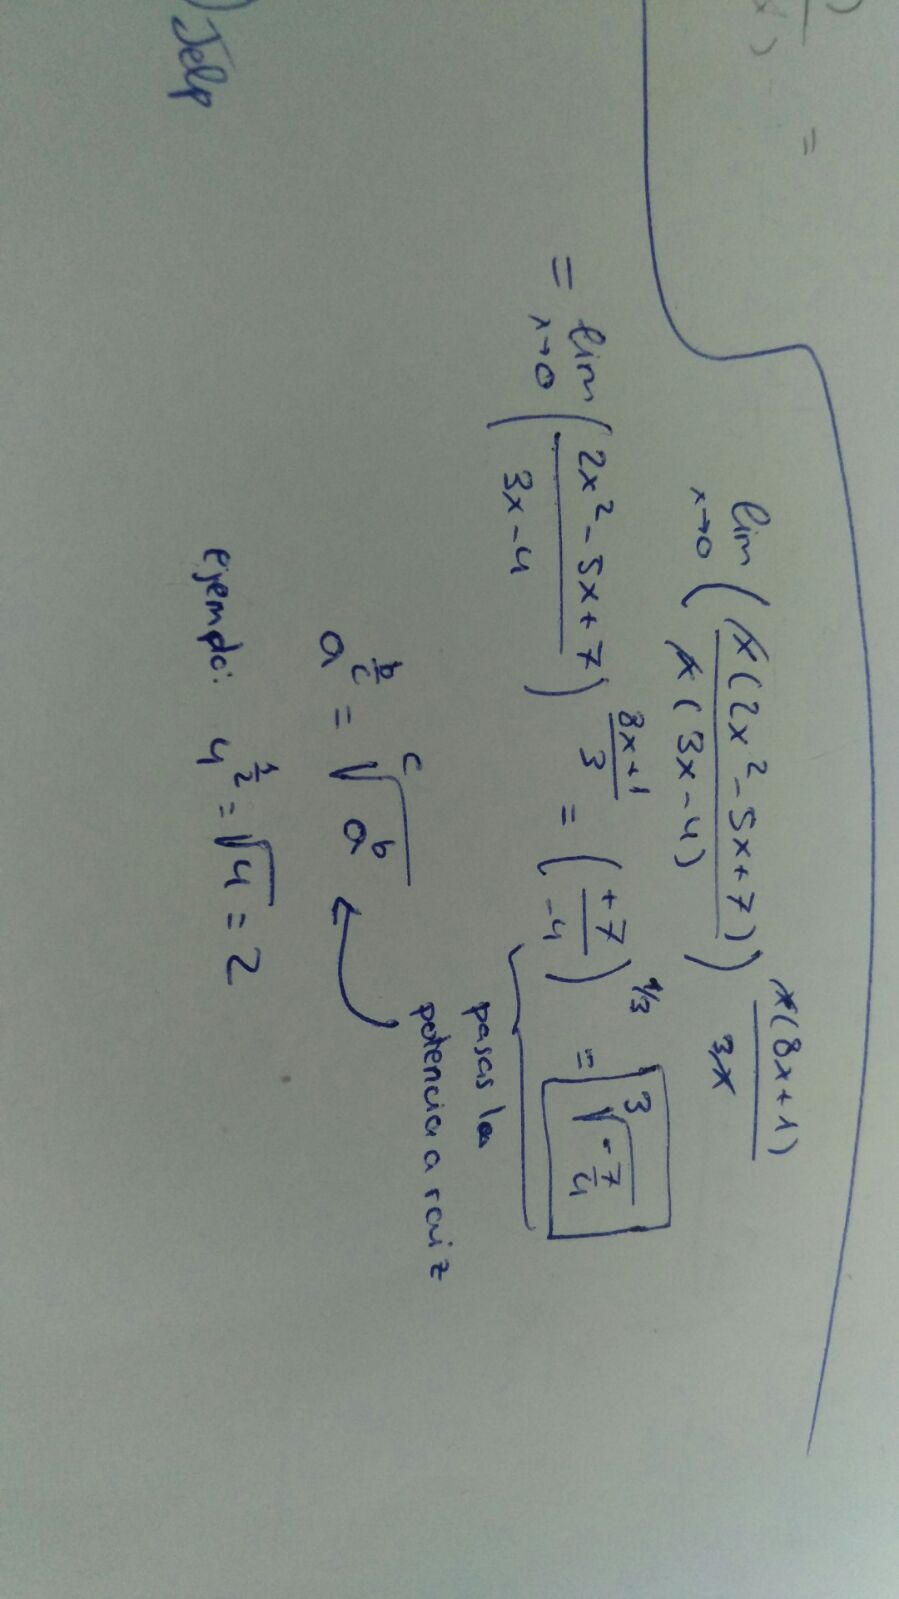 lim x→0 ( x(2x² - 5x + 7) / x(3x - 4) )^( x(8x+1) / 3x )
= lim x→0 ( 2x² - 5x + 7 / 3x - 4 )^( 8x+1 / 3 ) = ( +7 / -4 )^(1/3) = ∛(-7/4)
pasas la
potencia a raiz
a^(b/c) = ᶜ√(a^b)
ejemplo: 4^(1/2) = √4 = 2